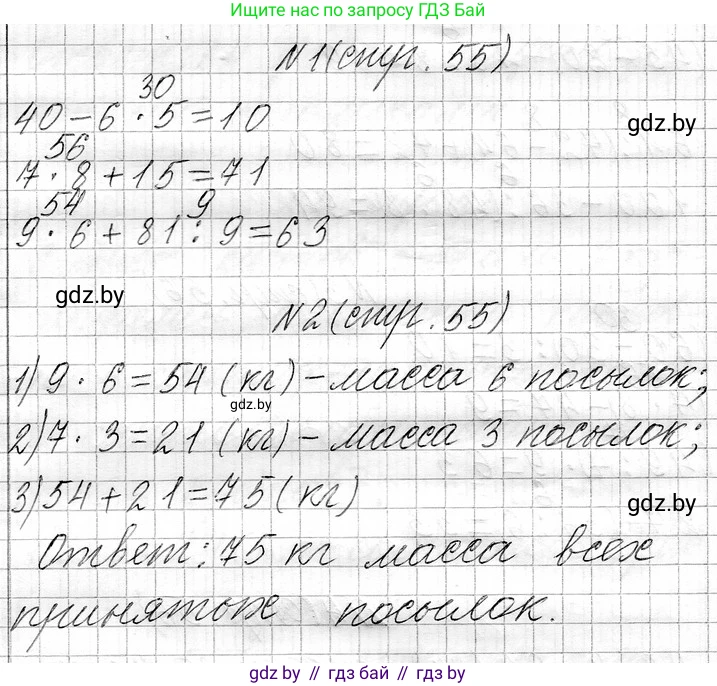 Ищите нас по запросу ГДЗ Бай
№1 (стр. 55)
30
40 - 6 · 5 = 10
gdz.by
56
7 · 8 + 15 = 71
54 9
9 · 6 + 81 : 9 = 63
gdz.by
№2 (стр. 55)
1) 9 · 6 = 54 (кг) - масса 6 посылок;
gdz.by
2) 7 · 3 = 21 (кг) - масса 3 посылок;
3) 54 + 21 = 75 (кг)
gdz.by
Ответ: 75 кг масса всех
принятых посылок.
gdz.by // гдз бай // gdz.by